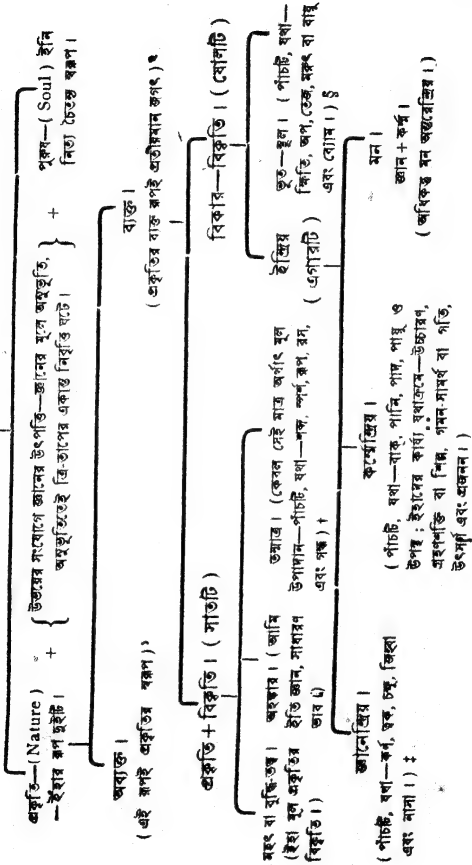 প্রকৃতি—( Nature )
—ইঁহার রূপ দুইটি।
+
{ উভয়ের সংযোগে জ্ঞানের উৎপত্তি—জ্ঞানের মূলে অনুভূতি,
অনুভূতিতেই ত্রি-তাপের একান্ত নিবৃত্তি ঘটে। }
+
পুরুষ—( Soul ) ইনি
নিত্য চৈতন্য স্বরূপ।
অব্যক্ত।
( এই রূপই প্রকৃতির স্বরূপ )১
ব্যক্ত।
( প্রকৃতির ব্যক্ত রূপই প্রতীয়মান জগৎ )২
প্রকৃতি + বিকৃতি। ( সাতটি )
বিকার—বিকৃতি। ( ষোলটি )
মহৎ বা বুদ্ধি-তত্ত্ব।
( ইহা মূল প্রকৃতির
বিকৃতি। )
অহঙ্কার। ( আমি
ইতি জ্ঞান, সাধারণ
ভাব। )
তন্মাত্র। ( কেবল সেই মাত্র অর্থাৎ মূল
উপাদান—পাঁচটি, যথা—শব্দ, স্পর্শ, রূপ, রস,
এবং গন্ধ। ) †
ইন্দ্রিয়
( এগারটি )
ভূত—স্থূল। ( পাঁচটি, যথা—
ক্ষিতি, অপ, তেজ, মরুৎ বা বায়ু
এবং ব্যোম। ) §
জ্ঞানেন্দ্রিয়।
( পাঁচটি, যথা—কর্ণ, ত্বক, চক্ষু, জিহ্বা
এবং নাসা। ) ‡
কর্ম্মেন্দ্রিয়।
( পাঁচটি, যথা—বাক, পানি, পাদ, পায়ু ও
উপস্থ; ইহাদের কার্য্য যথাক্রমে—উচ্চারণ,
গ্রহণশক্তি বা শিল্প, গমন-সামর্থ বা গতি,
উৎসর্গ এবং প্রজনন। )
মন।
জ্ঞান + কর্ম্ম।
( অধিকন্তু মন অন্তরেন্দ্রিয়। )